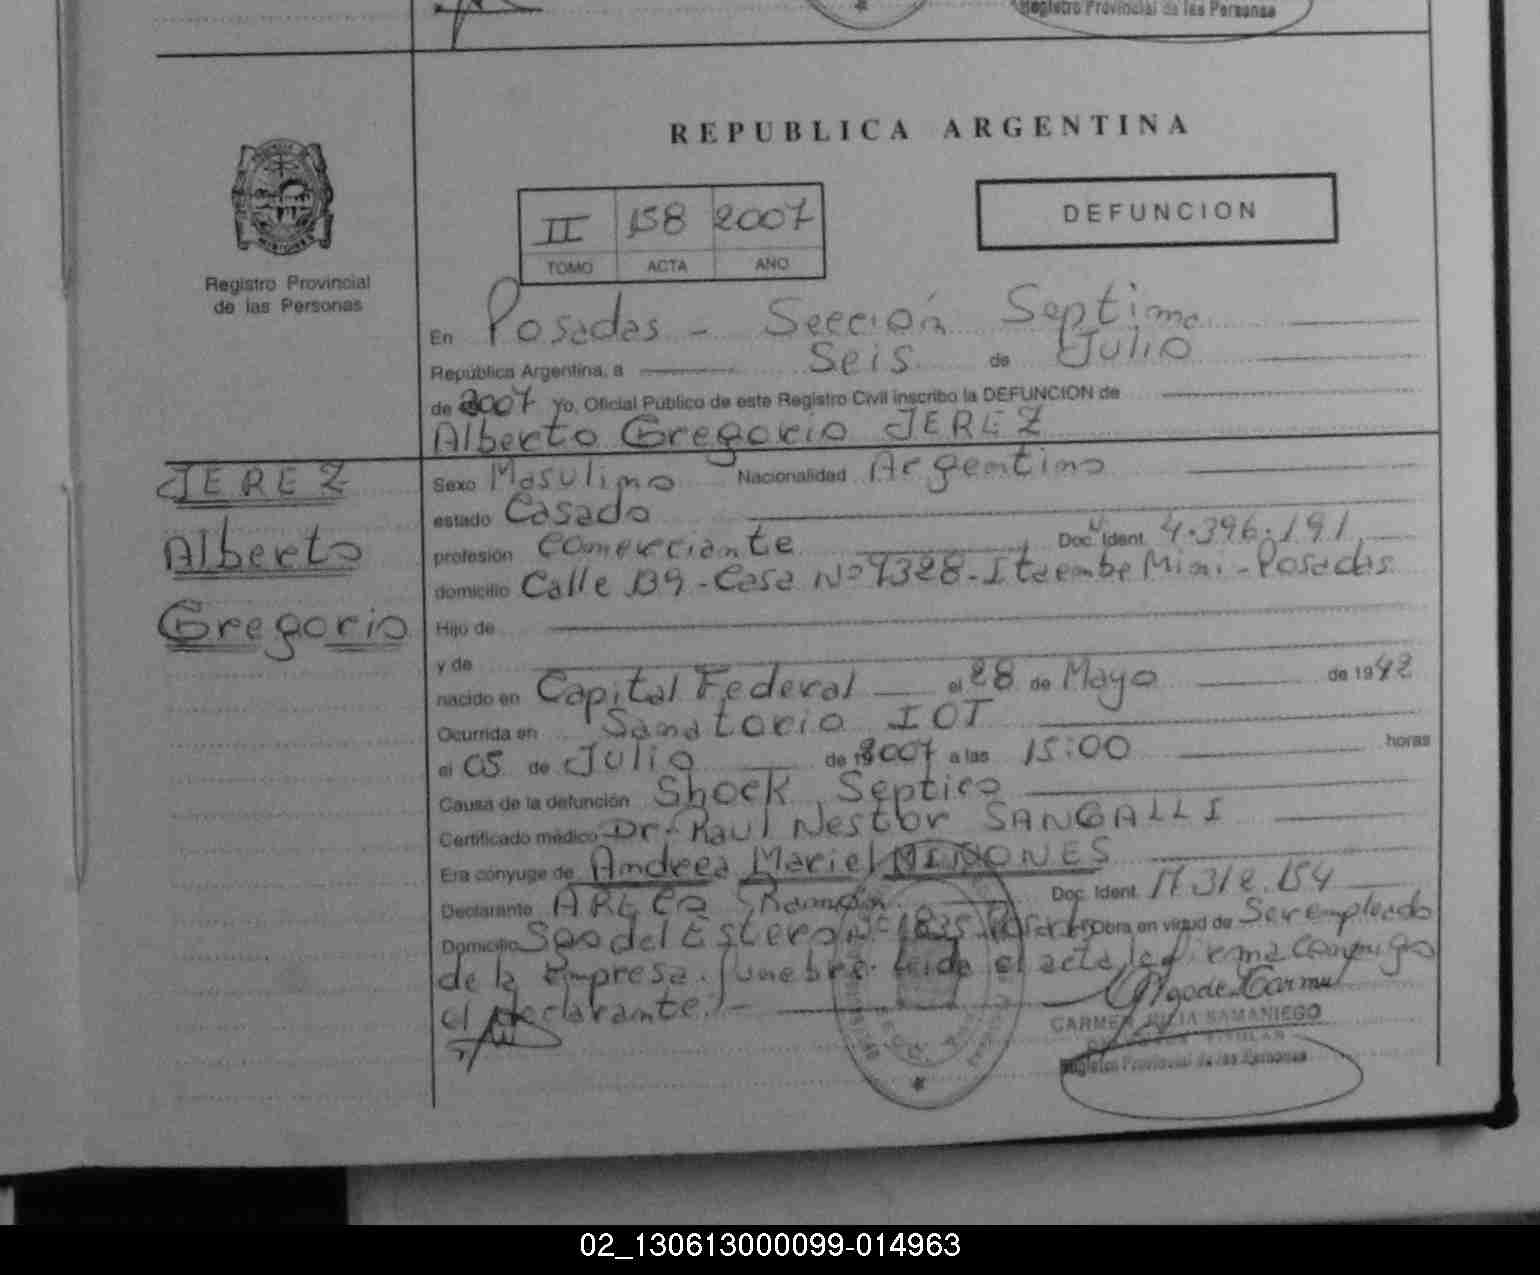 Registro Provincial de las Personas
REPUBLICA ARGENTINA
II 158 2007
TOMO ACTA AÑO
DEFUNCION
Registro Provincial
de las Personas
En Posadas - Sección Septima
República Argentina, a Seis de Julio
de 2007 Yo, Oficial Público de este Registro Civil inscribo la DEFUNCION de
Alberto Gregorio JEREZ
JEREZ
Alberto
Gregorio
Sexo Masulino Nacionalidad Argentino
estado Casado
profesión Comerciante Doc. Ident. 4.396.191
domicilio Calle 139 - Casa Nº 7328 - Itaembe Mini - Posadas
Hijo de
y de
nacido en Capital Federal el 28 de Mayo de 1942
Ocurrida en Sanatorio IOT
el 05 de Julio de 2007 a las 15:00 horas
Causa de la defunción Shock Septico
Certificado médico Dr. Raul Nestor SANGALLI
Era cónyuge de Andrea Mariel MIÑONES
Declarante Ramón Doc. Ident. 17.312.154
Domicilio Sgo del Estero Nº 1835 Posadas Obra en virtud de Ser empleado
de la Empresa funebre. leida el acta, la firma conmigo
el declarante. -
CARMEN JULIA SAMANIEGO
Registro Provincial de las Personas
02_130613000099-014963